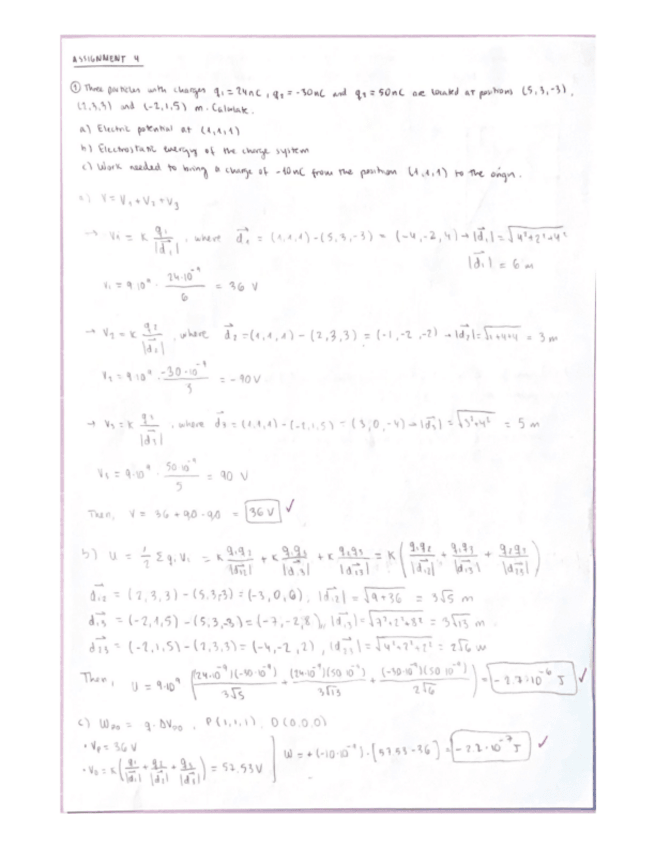 ASSIGNMENT 4
① Three particles with charges q₁ = 24nC, q₂ = -30nC and q₃ = 50nC are located at positions (5,3,-3),
(2,3,3) and (-2,1,5) m. Calculate.
a) Electric potential at (1,1,1)
b) Electrostatic energy of the charge system
c) Work needed to bring a charge of -10nC from the position (1,1,1) to the origin.
a) V = V₁ + V₂ + V₃
→ V₁ = K q₁/|d₁|, where d₁ = (1,1,1) - (5,3,-3) = (-4,-2,4) → |d₁| = √4²+2²+4²
|d₁| = 6 m
V₁ = 9·10⁹ · 24·10⁻⁹/6 = 36 V
→ V₂ = K q₂/|d₂|, where d₂ = (1,1,1) - (2,3,3) = (-1,-2,-2) → |d₂| = √1+4+4 = 3 m
V₂ = 9·10⁹ · -30·10⁻⁹/3 = -90V
→ V₃ = K q₃/|d₃|, where d₃ = (1,1,1) - (-2,1,5) = (3,0,-4) → |d₃| = √3²+4² = 5 m
V₃ = 9·10⁹ · 50·10⁻⁹/5 = 90 V
Then, V = 36 + 90 - 90 = 36 V ✓
b) U = 1/2 Σ qᵢ Vᵢ = K q₁q₂/|d₁₂| + K q₁q₃/|d₁₃| + K q₂q₃/|d₂₃| = K (q₁q₂/|d₁₂| + q₁q₃/|d₁₃| + q₂q₃/|d₂₃|)
d₁₂ = (2,3,3) - (5,3,-3) = (-3,0,6), |d₁₂| = √9+36 = 3√5 m
d₁₃ = (-2,1,5) - (5,3,-3) = (-7,-2,8), |d₁₃| = √7²+2²+8² = 3√13 m
d₂₃ = (-2,1,5) - (2,3,3) = (-4,-2,2), |d₂₃| = √4²+2²+2² = 2√6 m
Then, U = 9·10⁹ [(24·10⁻⁹)(-30·10⁻⁹)/3√5 + (24·10⁻⁹)(50·10⁻⁹)/3√13 + (-30·10⁻⁹)(50·10⁻⁹)/2√6] = -2.7·10⁻⁶ J ✓
c) W = q·ΔV, P(1,1,1), O(0,0,0)
• Vₚ = 36 V
• V₀ = K (q₁/|d₁| + q₂/|d₂| + q₃/|d₃|) = 52,53 V
W = +(-10·10⁻⁹)·[52.53 - 36] = -2.2·10⁻⁷ J ✓